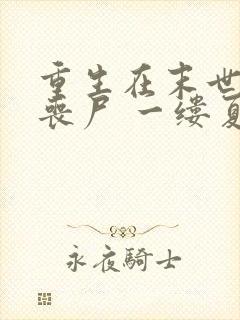 重生在末世
喪尸 一缕夏
永夜騎士